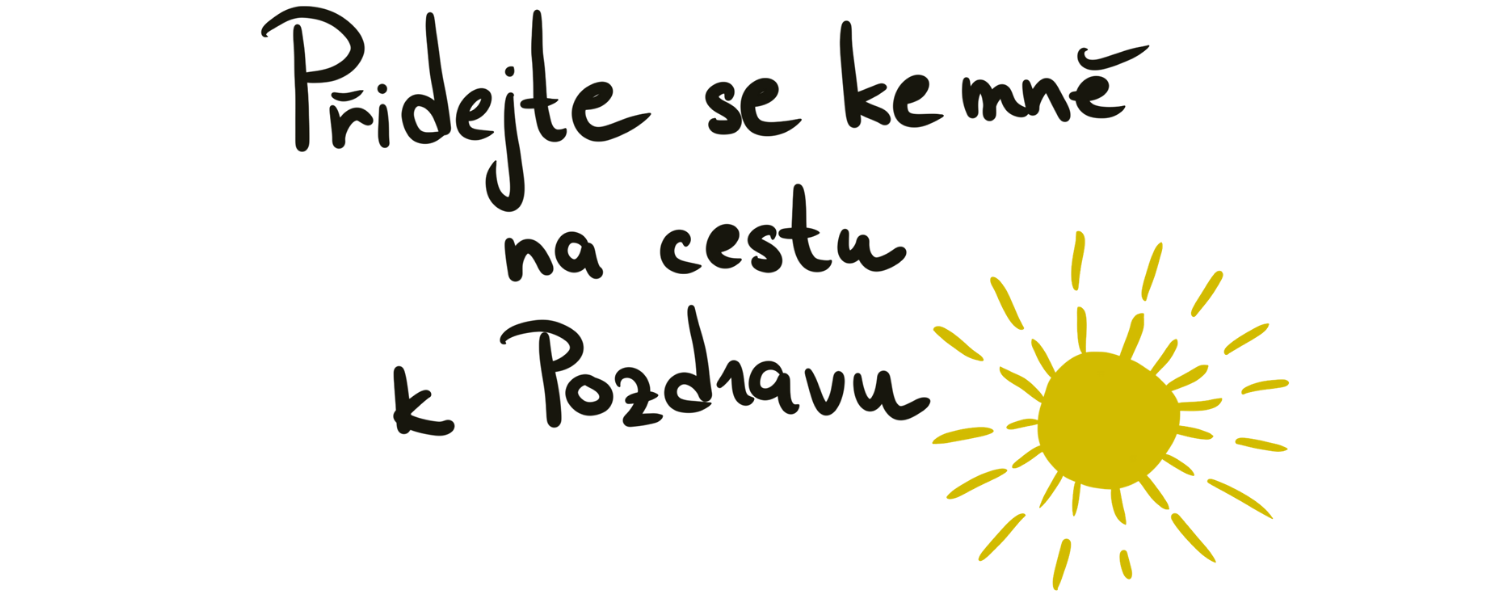 Přidejte se ke mně
na cestu
k Pozdravu